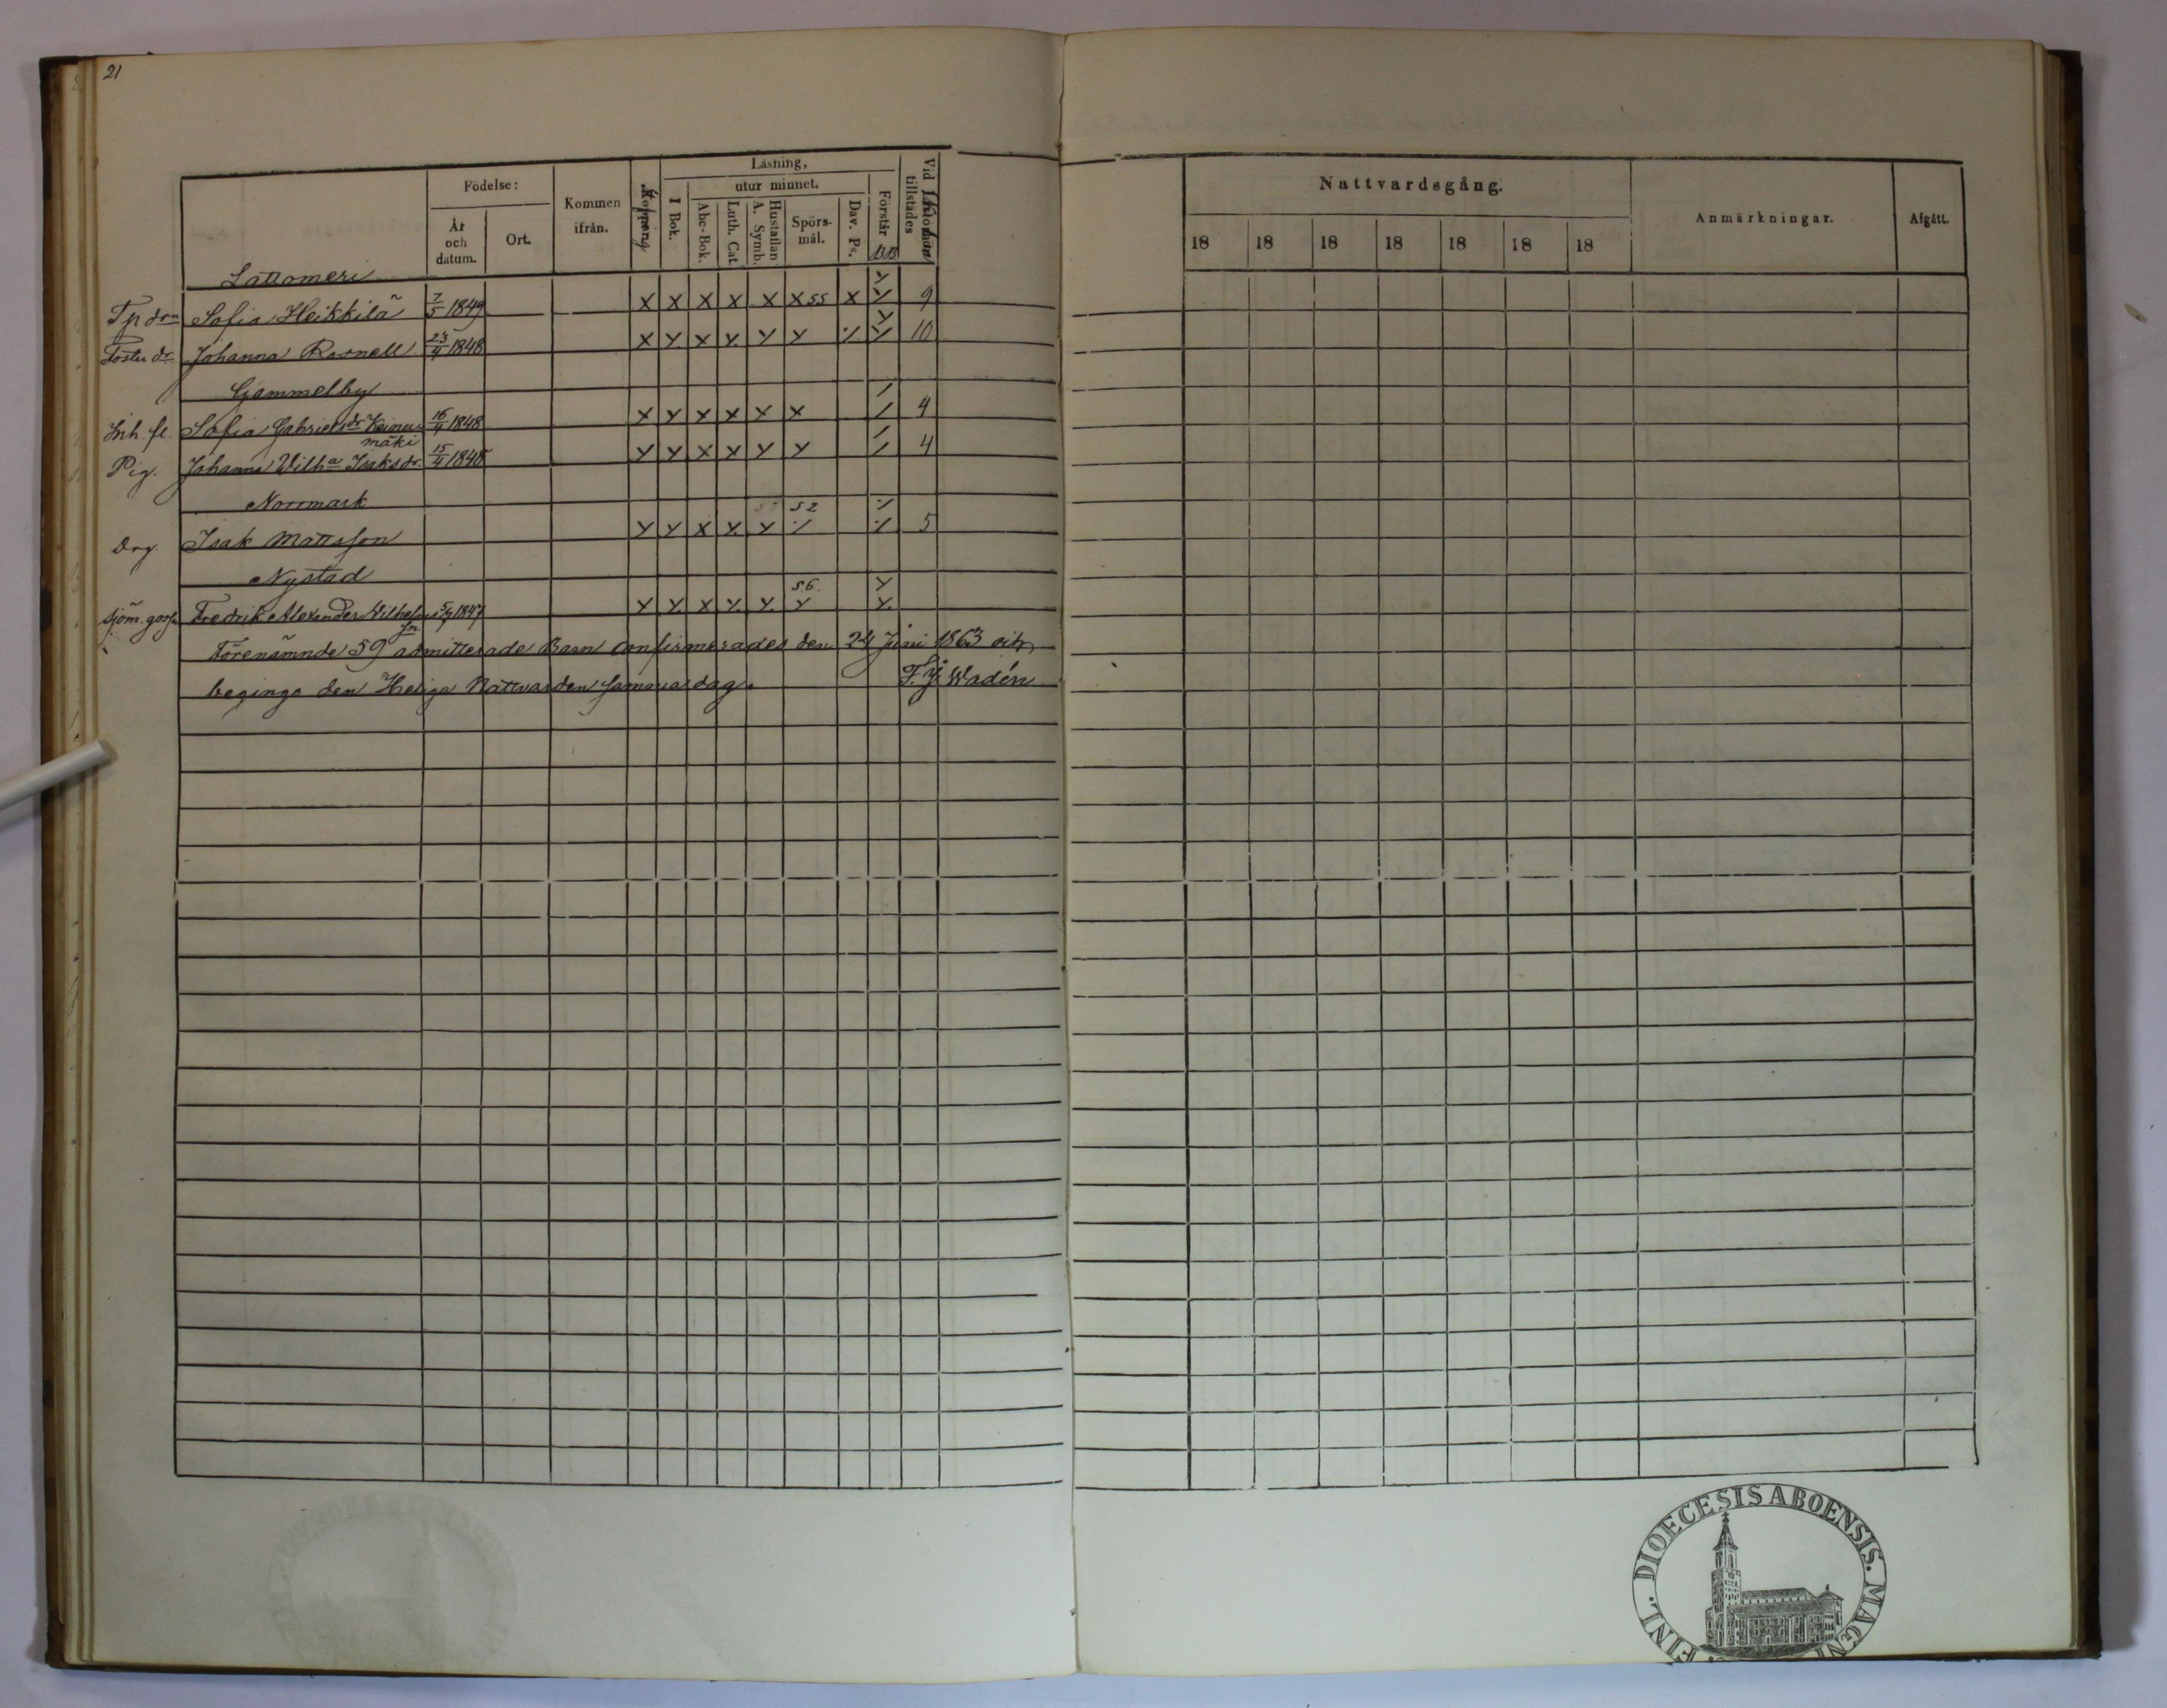 21
Födelse:
År och datum.
Ort.
Kommen ifrån.
Koppeng
Läsning,
I Bok.
utur minnet.
Abc-Bok.
Luth. Cat.
Hustaflan A. Symb.
Spörs-mål.
Dav. Ps.
Förstår
Vid tillstädes
Nattvardsgång.
18 18 18 18 18 18 18
Anmärkningar.
Afgått.
Lattomeri
Tp drn Sofia Heikkilä 7/5 1849 X X X X X X 55 X Y 9
Foster dr Johanna Rosnell 23/4 1848 X Y X Y Y Y ٪ Y 10
Gammelby
Inh. fl. Sofia Gabrielsdr 16/4 1848 X Y X X X X / 4
mäki
Pig. Johanna Wilha Isaksdr. 15/4 1848 Y Y X X Y Y / 4
Norrmark
52
Drg. Isak Mattsson Y Y X Y Y 5
Nystad
56
Sjöm. gosse Fredrik Alexander Wilhelms 5/7 1847 Y Y X Y Y Y Y
sn
Förenämnde 59 admitterade Barn confirmerades den 24 Juni 1863 och
begingo den Heliga Nattvarden samma dag.
F. J. Wadén
FINL. DIOECESIS ABOENSIS. MAGNI